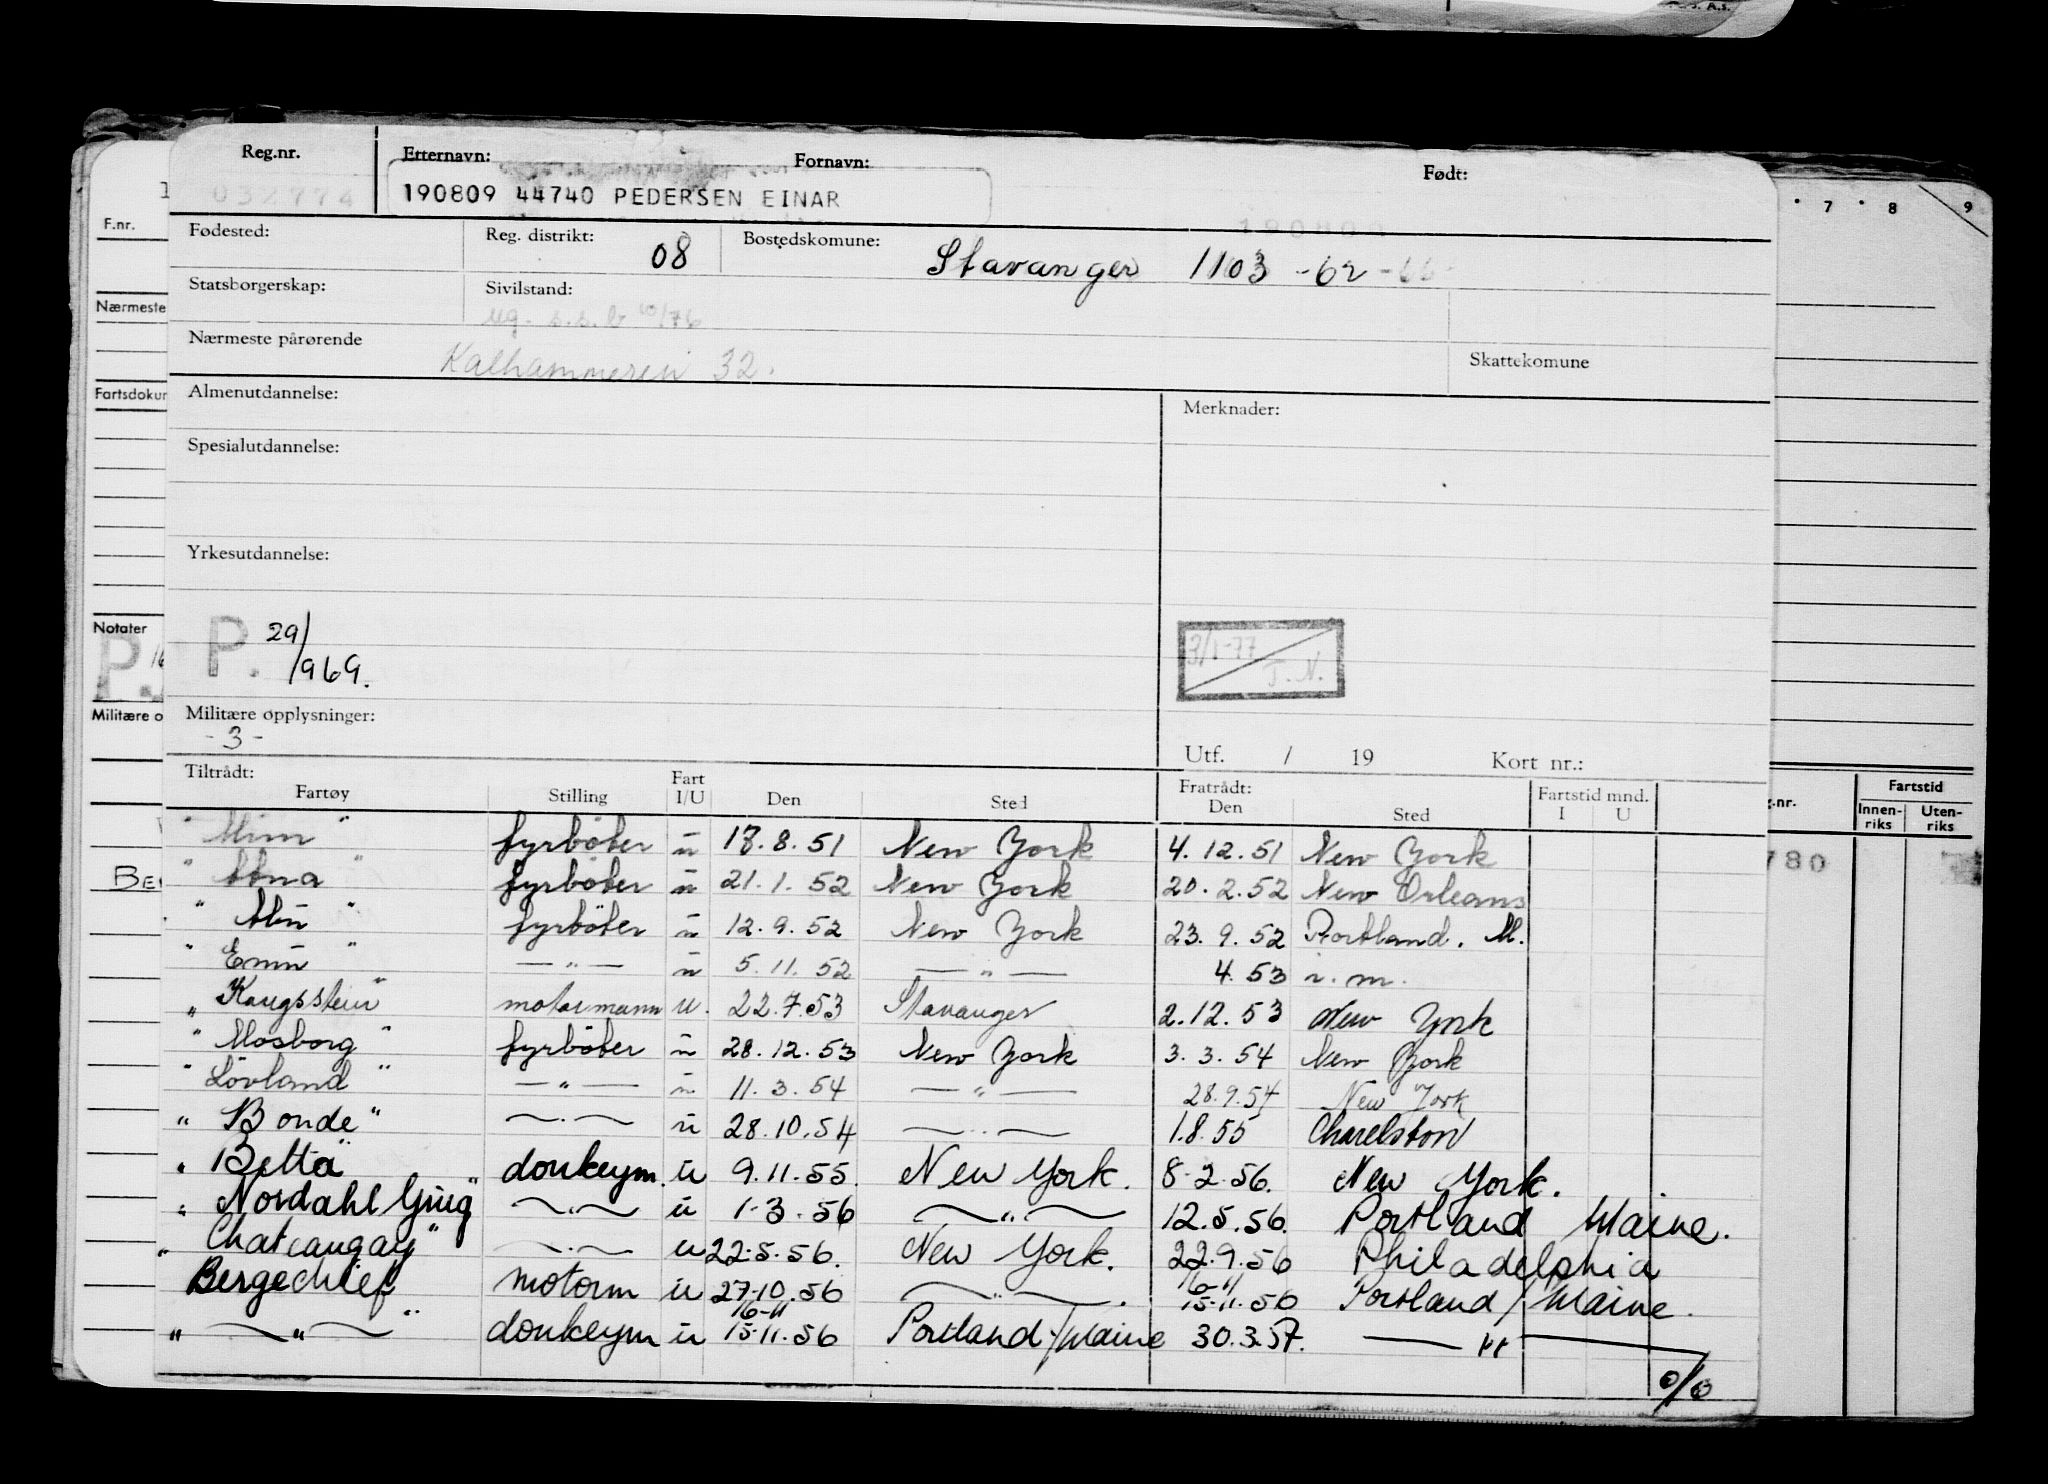 S. A.S.
Reg.nr. Etternavn: Fornavn: Født:
032774 190809 44740 PEDERSEN EINAR
7 8 9
F.nr. Fødested: Reg. distrikt: 08 Bostedskomune: Stavanger 1103 -62 -66
Statsborgerskap: Sivilstand:
ug. s.s.b 10/76
Nærmeste Nærmeste pårørende Kalhammeren 32. Skattekomune
Fartsdokum Almenutdannelse: Merknader:
Spesialutdannelse:
Yrkesutdannelse:
Notater P. 29/969. 3/1-77 T.N.
Militære o Militære opplysninger:
-3-
Utf. / 19 Kort nr.:
Tiltrådt: Fart Fratrådt: Fartstid mnd. Fartstid
Fartøy Stilling I/U Den Sted Den Sted I U g.nr. Innen-riks Uten-riks
" Mim " fyrbøter u 17.8.51 New York 4.12.51 New York
" Atna " fyrbøter u 21.1.52 New York 20.2.52 New Orleans 780
" " fyrbøter u 12.9.52 New York 23.9.52 Portland. M.
" " — " — u 5.11.52 — " — 4.53 i.m.
" Kongsstein" motormann u. 22.7.53 Stavanger 2.12.53 New York
" Mosborg " fyrbøter u 28.12.53 New York 3.3.54 New York
" Lövland " — " — u 11.3.54 — " — 28.9.54 New York
" Bonde " — " — u 28.10.54 — " — 1.8.55 Charelston
" Betta " donkeym. u 9.11.55. New York. 8-2.56. New York.
" Nordahl Grieg" — " — u 1-3.56 — " — 12.5.56. Portland Maine.
" Chateaugay" — " — u 22.5.56. New York. 22.9.56 Philadelphia
Bergechief" motorm u 27.10.56 — " —. 16-11 15-11.56 Portland/Maine.
" — " — " donkeym u 16-11 15-11.56 Portland/Maine 30.3.57. — " —
o/o